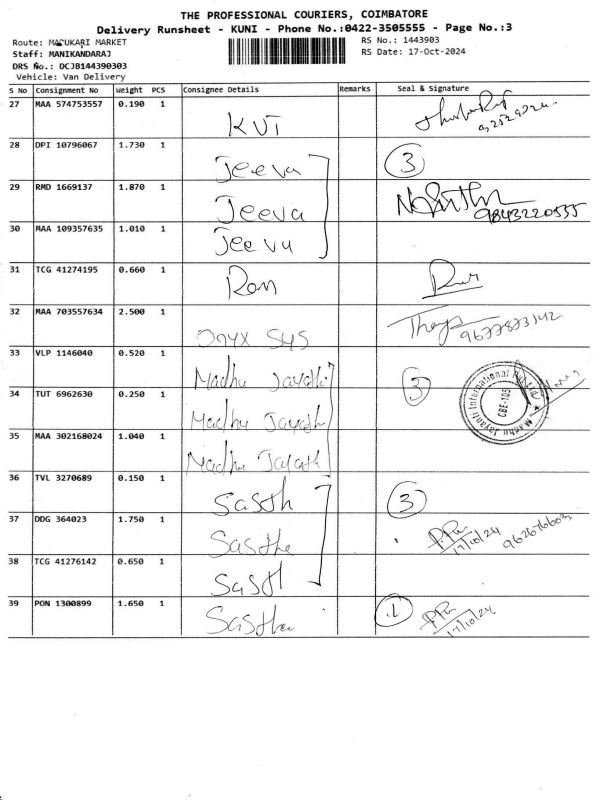 THE PROFESSIONAL COURIERS, COIMBATORE
Delivery Runsheet - KUNI - Phone No.:0422-3505555 - Page No.:3
Route: MADUKARI MARKET RS No.: 1443903
Staff: MANIKANDARAJ RS Date: 17-Oct-2024
DRS No.: DCJB144390303
Vehicle: Van Delivery
S No Consignment No Weight PCS Consignee Details Remarks Seal & Signature
27 MAA 574753557 0.190 1 KVT
28 DPI 10796067 1.730 1 Jeeva 3
29 RMD 1669137 1.870 1 Jeeva 9843220555
30 MAA 109357635 1.010 1 Jeeva
31 TCG 41274195 0.660 1 Ran
32 MAA 703557634 2.500 1 Onyx Sys
33 VLP 1146040 0.520 1 Madhu Jayathi 3
Madhu Jayanti International Private CBE-105
34 TUT 6962630 0.250 1 Madhu Jayath
35 MAA 302168024 1.040 1 Madhu Jayath
36 TVL 3270689 0.150 1 Sasth 3
37 DDG 364023 1.750 1 Sastha 17/10/24
38 TCG 41276142 0.650 1 Sast
39 PON 1300899 1.650 1 Sastha 1 17/10/24